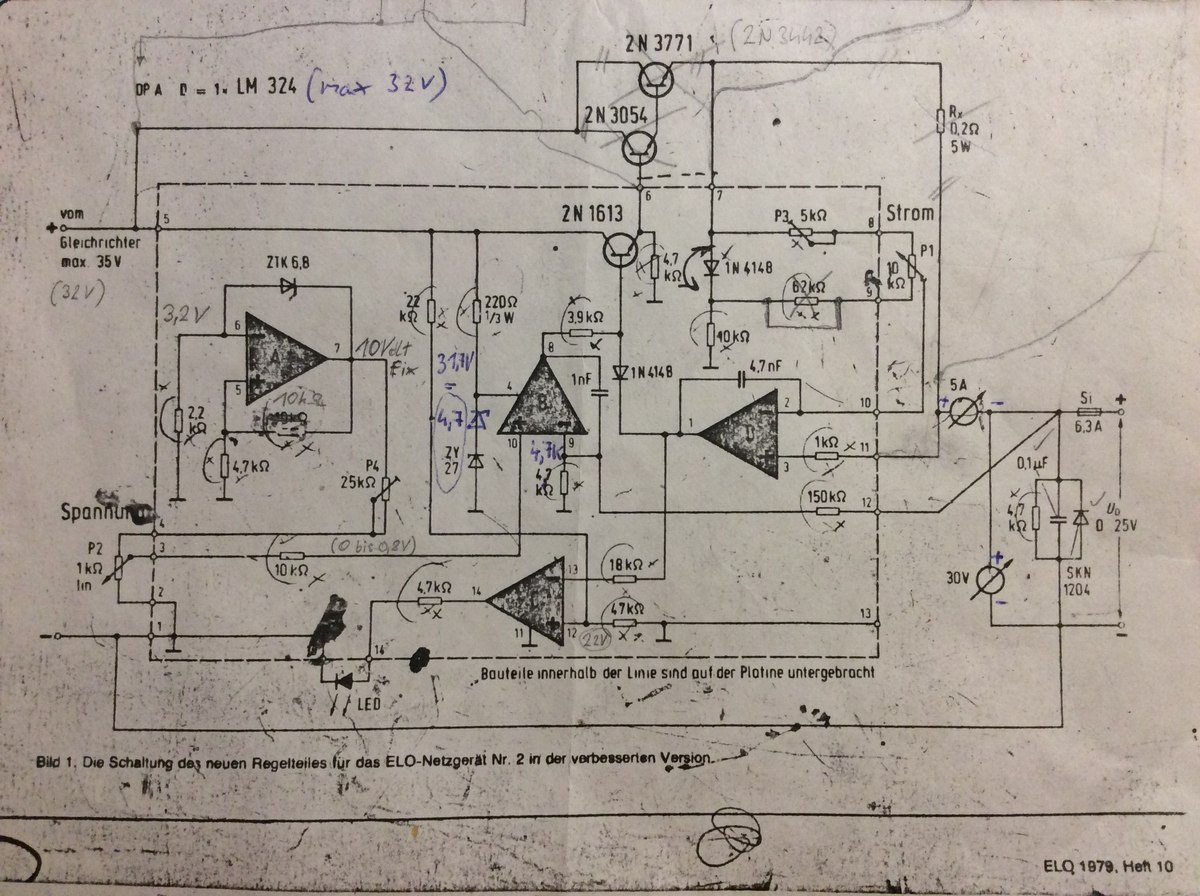 2N 3771
(2N3442)
OPA D = 1x LM 324 (max 32V)
2N 3054
Rx
0,2Ω
5W
6
7
2N 1613
vom
Gleichrichter
max. 35V
(32V)
+
5
P3 5kΩ
8
Strom
P1
10
kΩ
9
ZTK 6,8
4,7
kΩ
1N 4148
62kΩ
22
kΩ
220Ω
1/3 W
3,9kΩ
3,2V
6
A
7
10Volt
fix
5
8
10kΩ
31,7V
=
4,7
1nF
1N4148
4,7nF
5A
Si
6,3A
+
2,2
kΩ
4
B
1
D
2
10
10kΩ
4,7kΩ
ZY
27
10
9
4,7k
4,7
kΩ
3
1kΩ
11
P4
25kΩ
150kΩ
12
0,1µF
4,7
kΩ
U₀
0 25V
Spannung
4
(0 bis 0,8V)
P2
1kΩ
lin
3
10kΩ
13
18kΩ
30V
SKN
1204
2
4,7kΩ
14
47kΩ
13
−
1
11
12
22V
16
LED
Bauteile innerhalb der Linie sind auf der Platine untergebracht
Bild 1. Die Schaltung des neuen Regelteiles für das ELO-Netzgerät Nr. 2 in der verbesserten Version.
ELO 1979, Heft 10